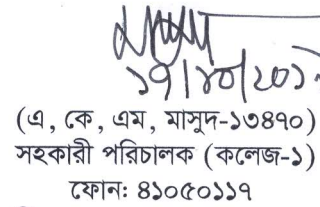 (এ, কে, এম, মাসুদ-১৩৪৭০)
সহকারী পরিচালক (কলেজ-১)
ফোন: ৪১০৫০১১৭